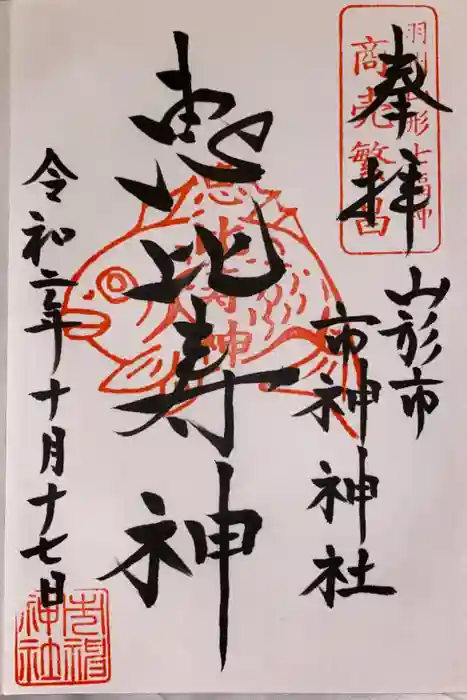 奉拝
羽州山形七福神
商売繁昌
山形市
市神神社
恵比寿神
恵比寿神
令和二年十月十七日
市神神社